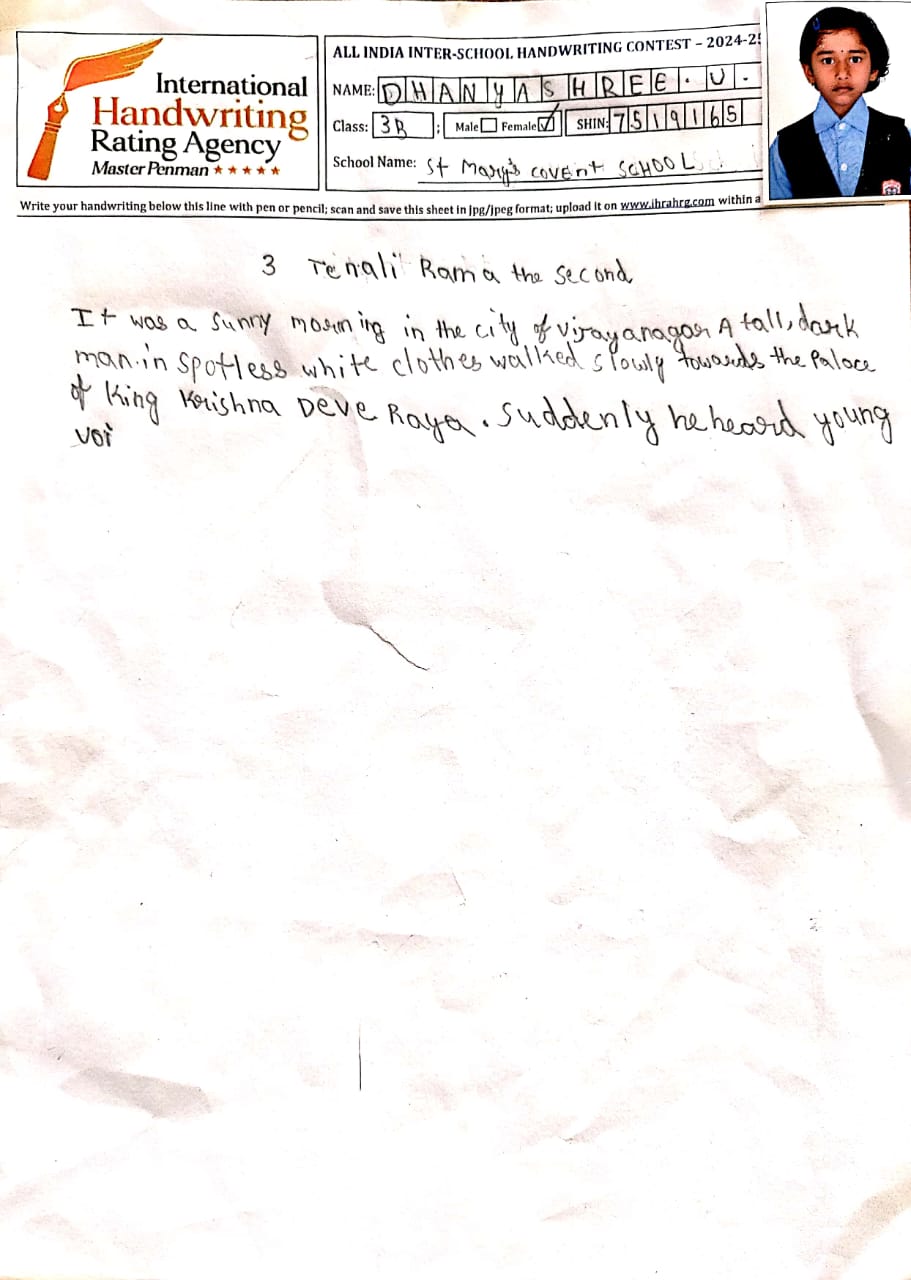 International
Handwriting
Rating Agency
Master Penman ★★★★★
ALL INDIA INTER-SCHOOL HANDWRITING CONTEST – 2024-25
NAME: DHANYASHREE. U.
Class: 3B ; Male Female ✓ SHIN: 7519165
School Name: St Mary's covent SCHOOL
Write your handwriting below this line with pen or pencil; scan and save this sheet in jpg/jpeg format; upload it on www.ihrahrg.com within a
3 Tenali Rama the second
It was a sunny morning in the city of vijayanagar A tall, dark
man.in spotless white clothes walked slowly towards the Palace
of King Krishna Deve Raya. suddenly he heard young
voi